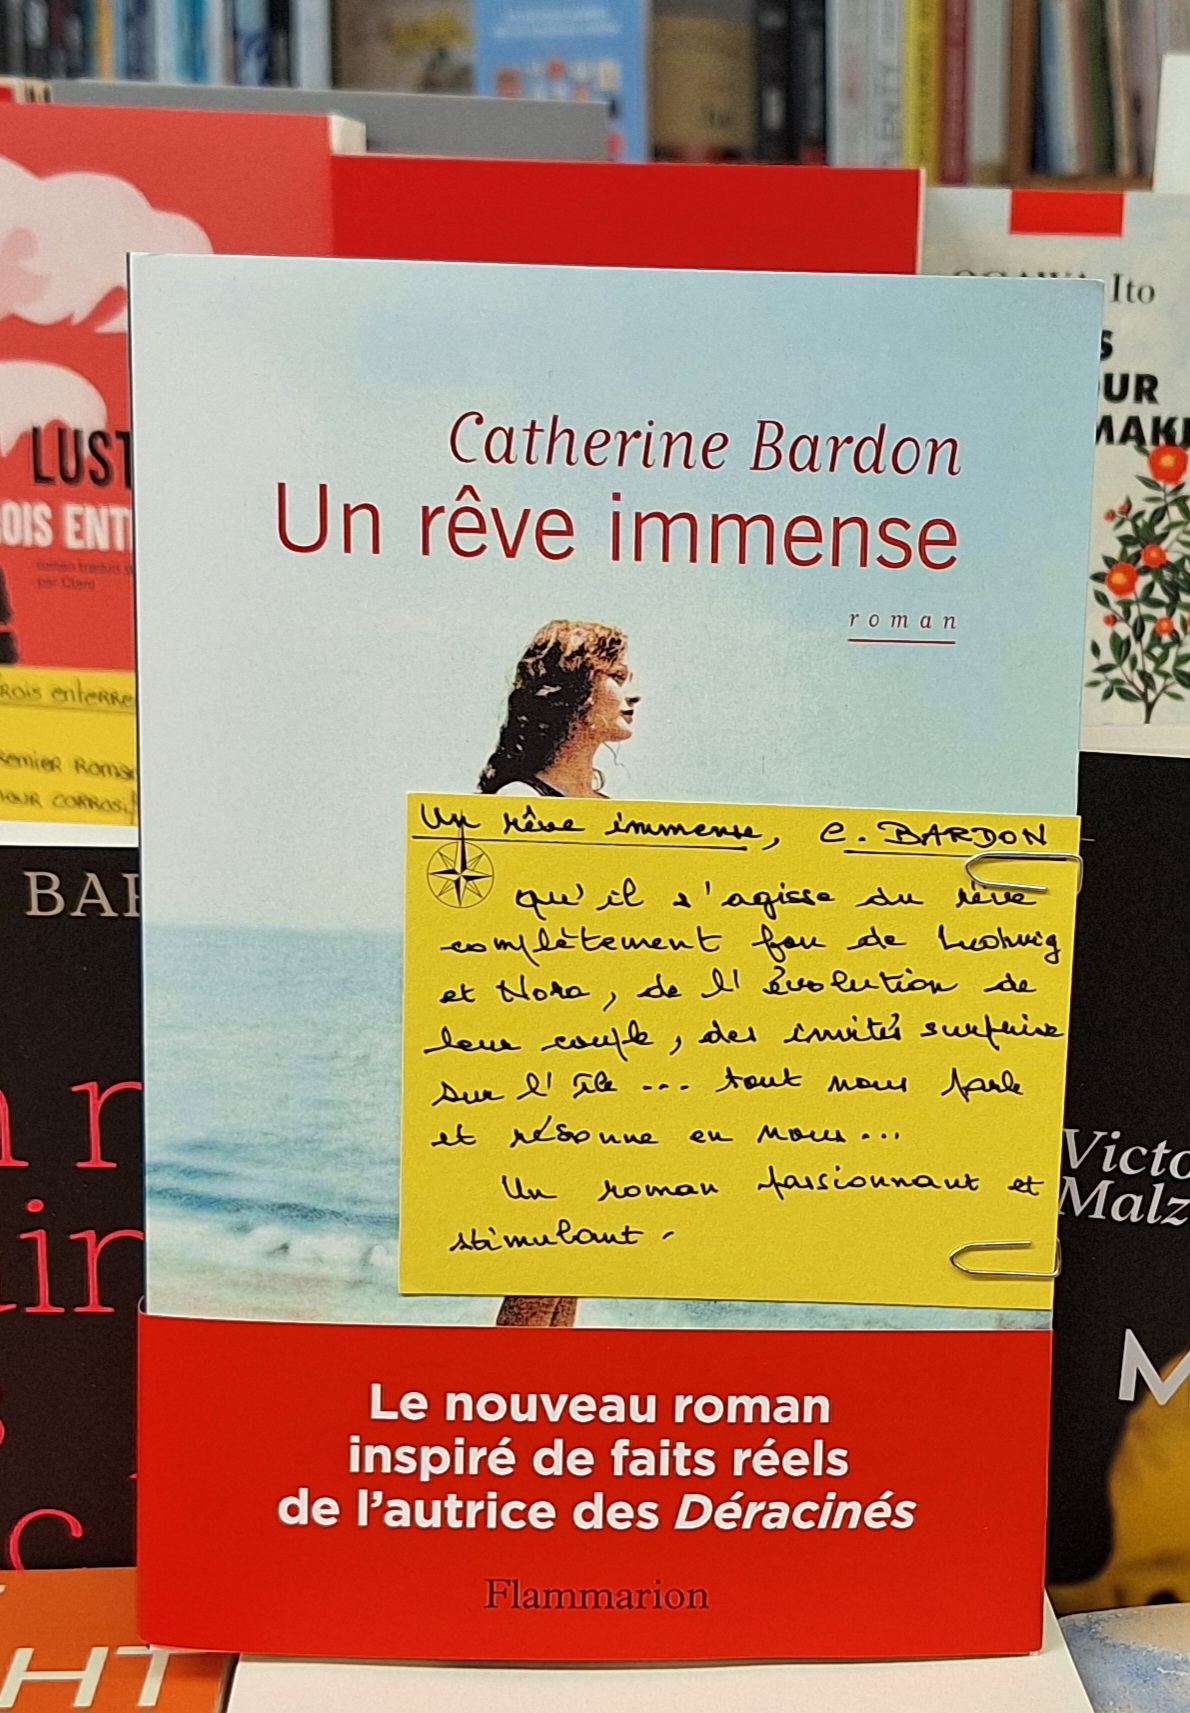 Ito
UR
MAK
LUST
OIS ENT
roman traduit
par Claro
Catherine Bardon
Un rêve immense
roman
rois enterre
remier Roma
our corrosif
Un rêve immense, C. BARDON
qu'il s'agisse du rêve
complètement fou de Ludwig
et Nora, de l'évolution de
leur couple, des invités surprise
sur l'île ... tout nous parle
et résonne en nous...
Un roman passionnant et
stimulant.
BAR
Victo
Malz
M
Le nouveau roman
inspiré de faits réels
de l'autrice des Déracinés
Flammarion
HT